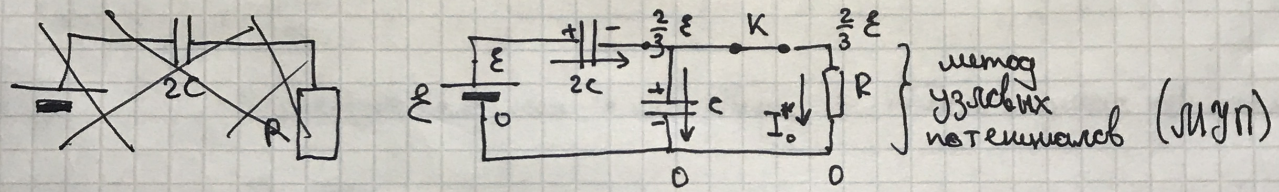 2C
R
ℰ
ℰ
0
+ -
2C
2/3 ℰ
+
-
C
0
K
2/3 ℰ
I₀*
R
0
метод
узловых
потенциалов (МУП)